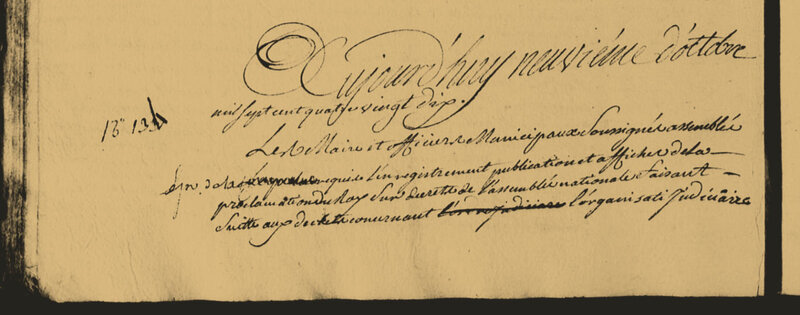 Aujourd'huy neuviéme d'octbre
mil sept cent quatre vingt dix.
Les Maire et officiers Municipaux Soussignés assemblés
requis l'enregistrement publication et afficher de la
proclamation du Roy Sur decrets de l'assemblée nationale faisant
Suitte aux decrets concernant l'organisati Judiciaire